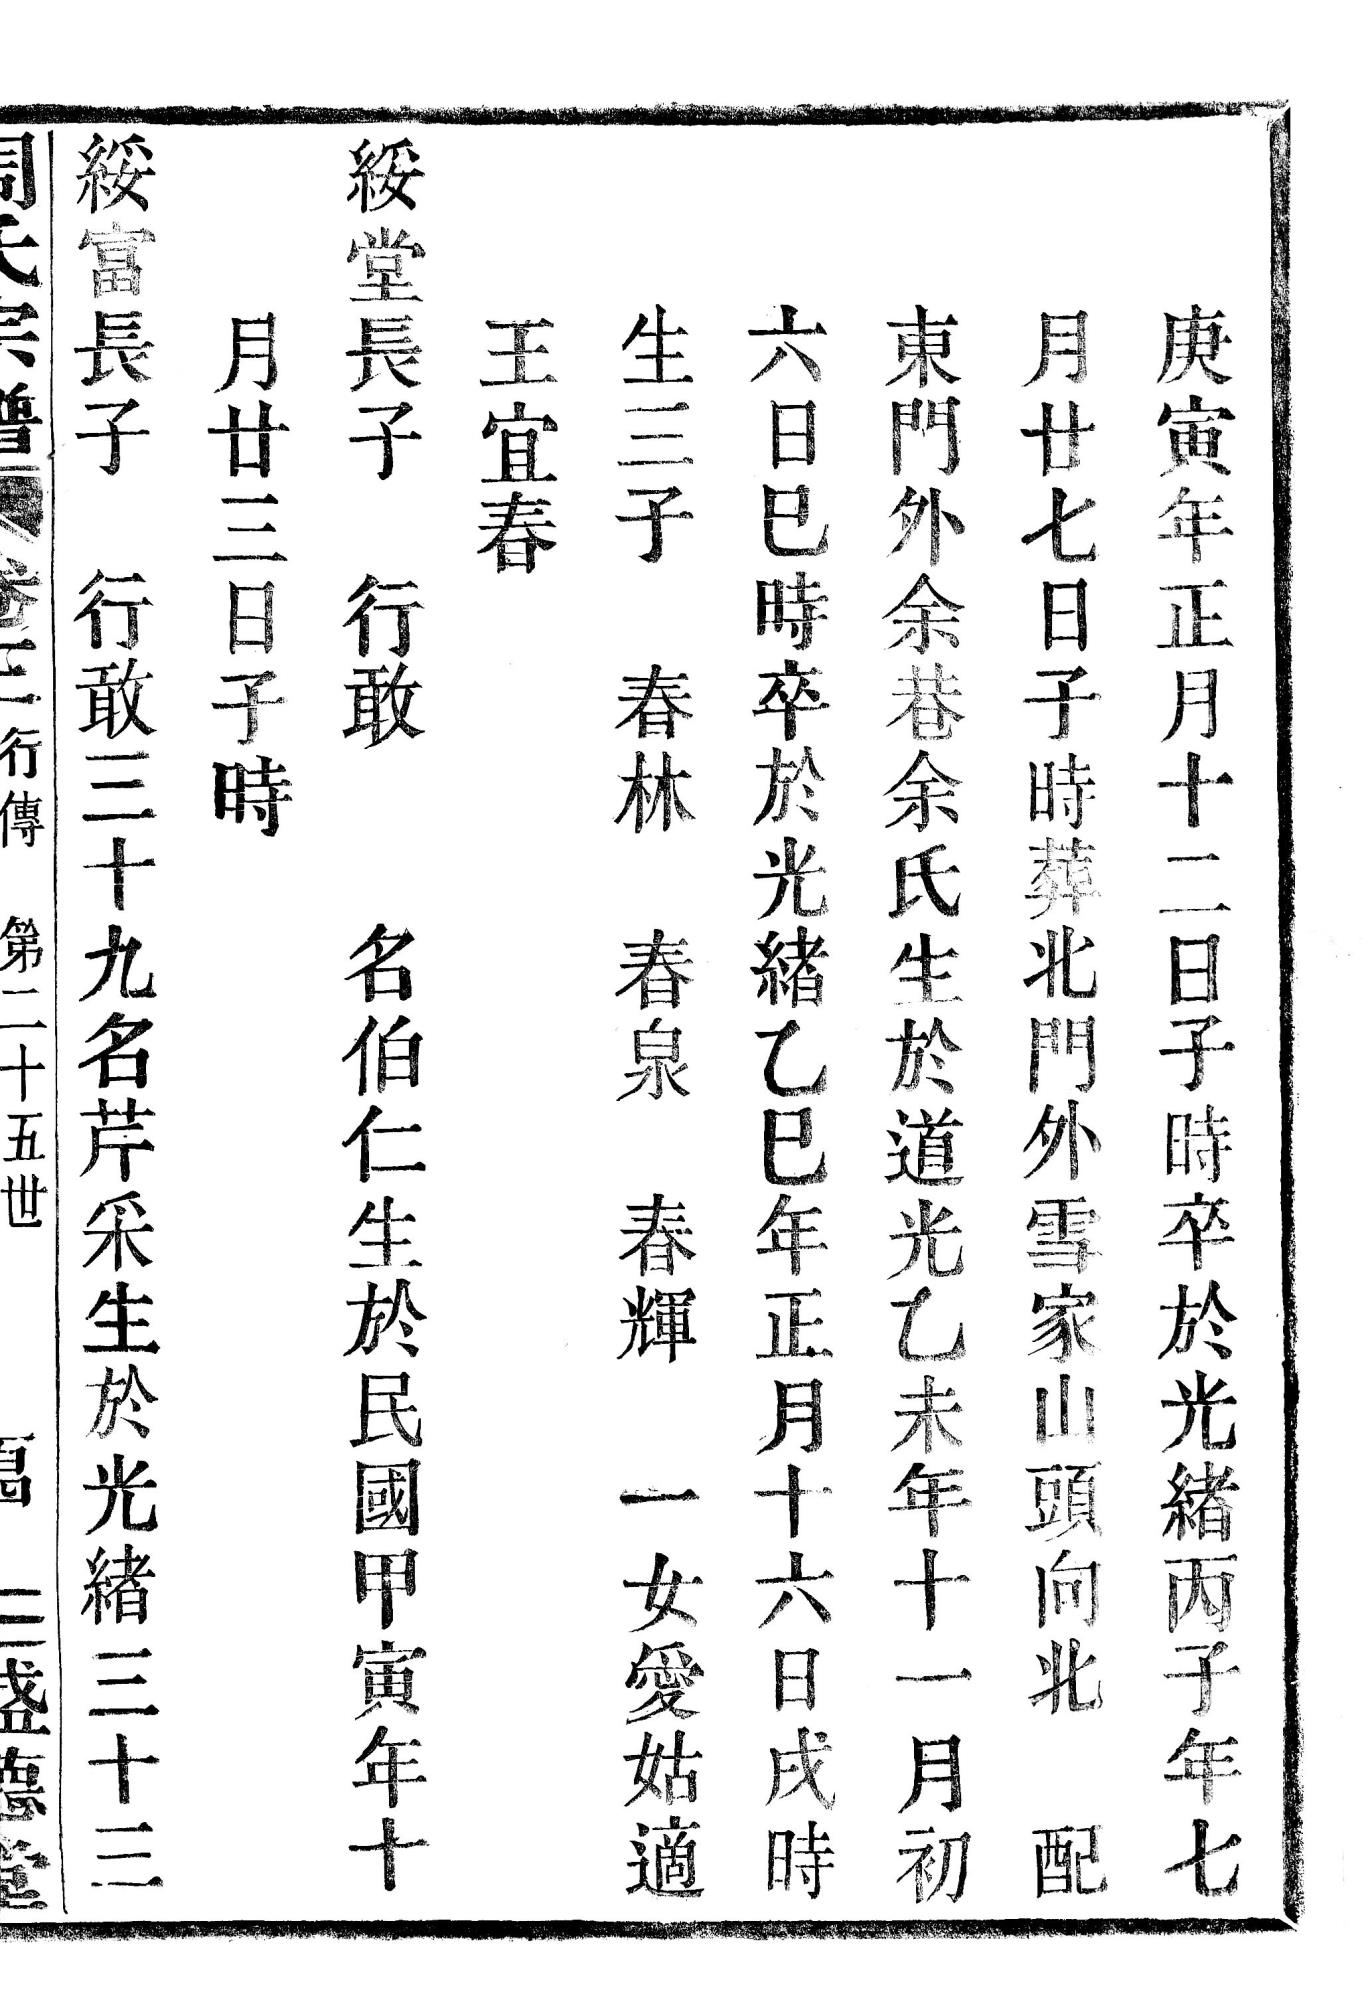 庚寅年正月十二日子時卒於光緒丙子年七
月廿七日子時葬北門外雪家山頭向北 配
東門外余巷余氏生於道光乙未年十一月初
六日巳時卒於光緒乙巳年正月十六日戌時
生三子 春林 春泉 春輝 一女愛姑適
王宜春
綏堂長子 行敢 名伯仁生於民國甲寅年十
月廿三日子時
綏富長子 行敢三十九名芹采生於光緒三十三
周氏宗譜 卷三 行傳 第二十五世 盛德堂